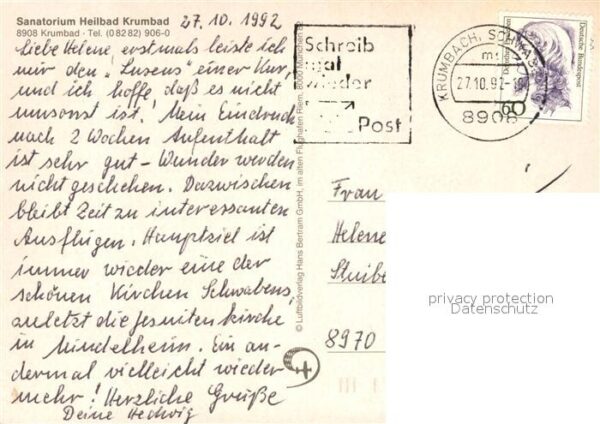 Sanatorium Heilbad Krumbad
8908 Krumbad · Tel. (0 82 82) 906-0
27.10.1992
liebe Helene erstmals leiste ich
mir den "Luxus" einer Kur,
und ich hoffe daß es nicht
umsonst ist! Mein Eindruck
nach 2 Wochen Aufenthalt
ist sehr gut - Wunder werden
nicht geschehen. Dazwischen
bleibt Zeit zu interessanten
Ausflügen. Hauptziel ist
immer wieder eine der
schönen Kirchen Schwabens,
zuletzt die Jesuitenkirche
in Mindelheim. Ein an-
dermal vielleicht wieder
mehr! Herzliche Grüße
Deine Hedwig
© Luftbildverlag Hans Bertram GmbH, im alten Flughafen Riem, 8000 München
Schreib
mal
wieder
Post
KRUMBACH, SCHWAB
27.10.92
8908
Deutsche Bundespost
60
Frau
Helene
8970
privacy protection
Datenschutz